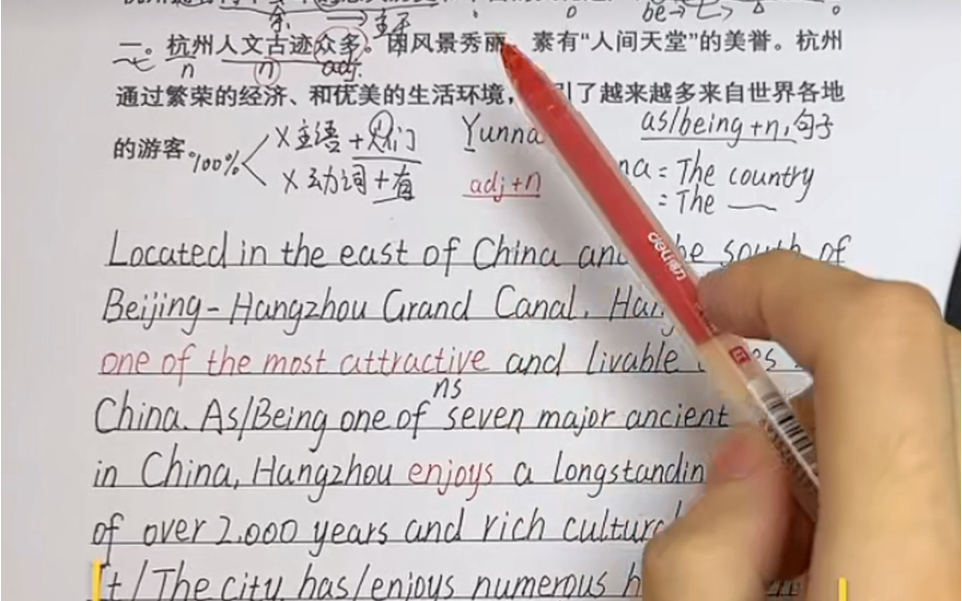 东 → 主干 be→
一。杭州人文古迹众多。因风景秀丽，素有“人间天堂”的美誉。杭州
n n adj.
通过繁荣的经济、和优美的生活环境，引了越来越多来自世界各地
的游客。100% X主语+财们 Yunna as/being+n，句子
X动词+有 adj+n na = The country
= The
Located in the east of China an he south of
Beijing-Hangzhou Grand Canal, Han
one of the most attractive and livable es
ns
China. As/Being one of seven major ancient
in China, Hangzhou enjoys a longstandin
of over 2.000 years and rich cultura
It/The city has/enjoys numerous h
deli得力